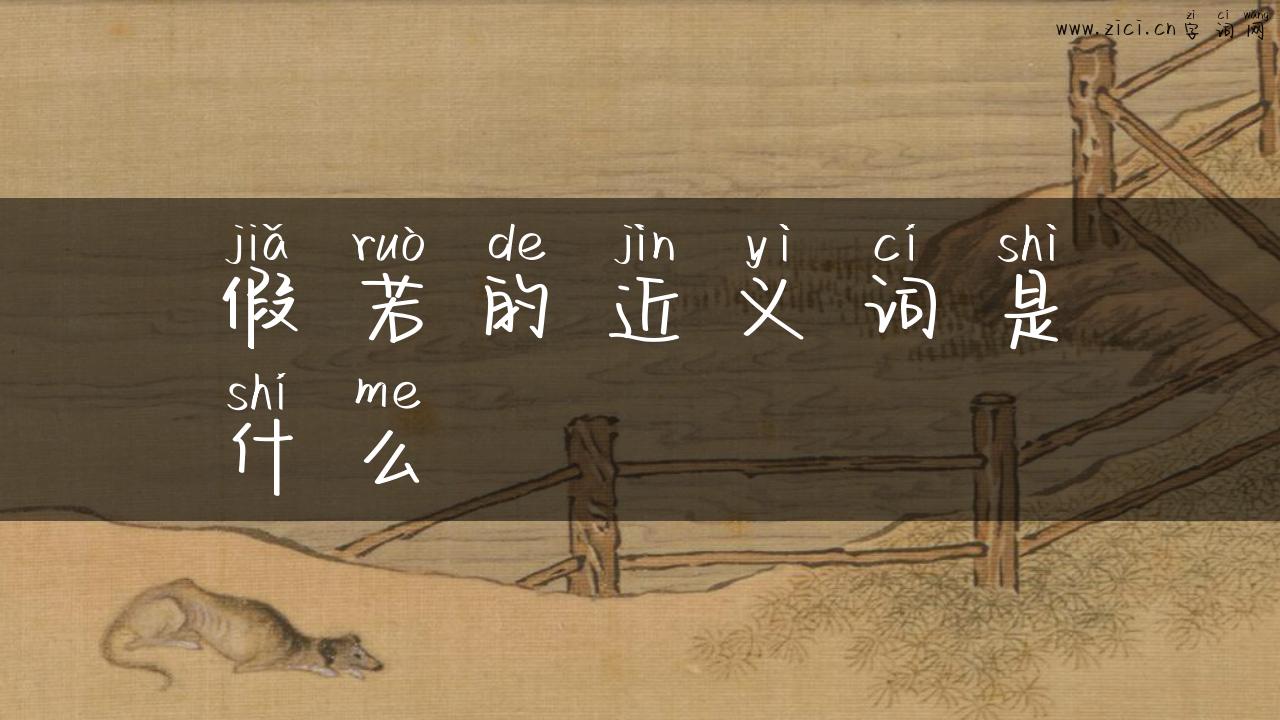 zi ci wang
www.zici.cn字词网
jiǎ ruò de jìn yì cí shì
假若的近义词是
shí me
什么